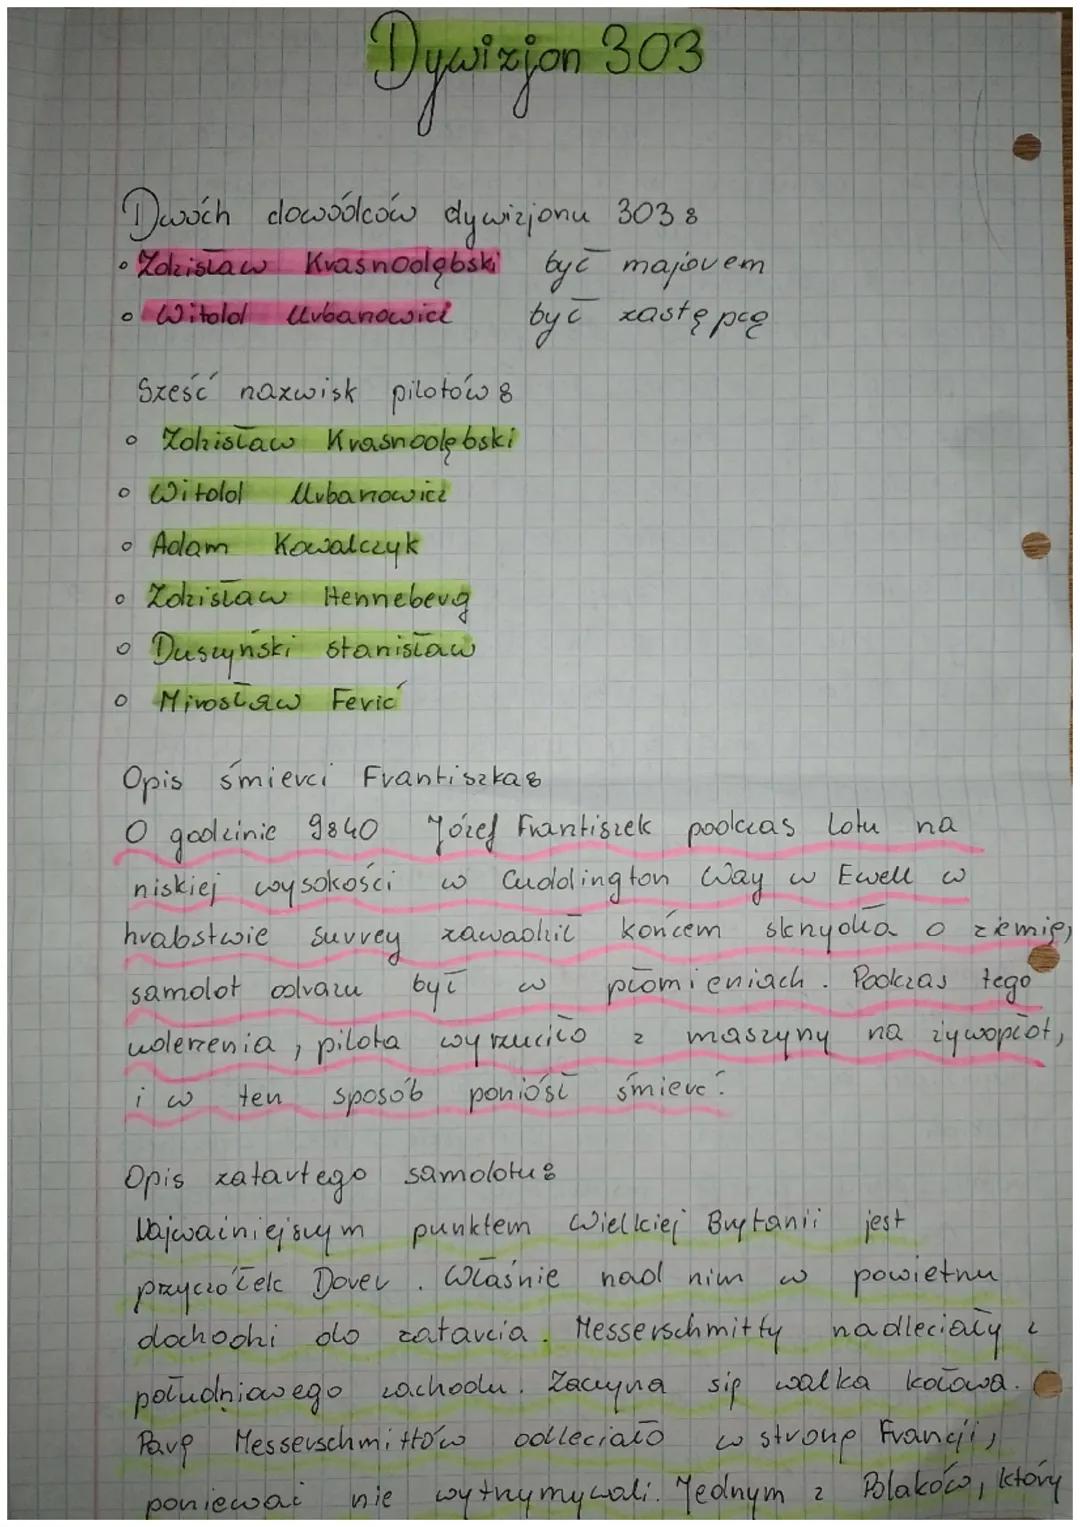 Dywizjon 303
Dwóch dowódców dywizjonu 303 :
• Zdzisław Krasnodębski był majorem
• Witold Urbanowicz był zastępcą
Sześć nazwisk pilotów :
• Zdzisław Krasnodębski
• Witold Urbanowicz
• Adam Kowalczyk
• Zdzisław Henneberg
• Duszyński Stanisław
• Mirosław Ferić
Opis śmierci Frantiszka:
O godzinie 9:40 Józef Frantiszek podczas lotu na
niskiej wysokości w Cuddington Way w Ewell w
hrabstwie Surrey zawadził końcem skrzydła o ziemię,
samolot odrazu był w płomieniach. Podczas tego
uderzenia, pilota wyrzuciło z maszyny na żywopłot,
i w ten sposób poniósł śmierć.
Opis zatartego samolotu:
Najważniejszym punktem Wielkiej Brytanii jest
przyczółek Dover. Właśnie nad nim w powietrzu
dochodzi do zatarcia. Messerschmitty nadleciały z
południowego zachodu. Zaczyna się walka kołowa.
Parę Messerschmittów odleciało w stronę Francji,
ponieważ nie wytrzymywali. Jednym z Polaków, który